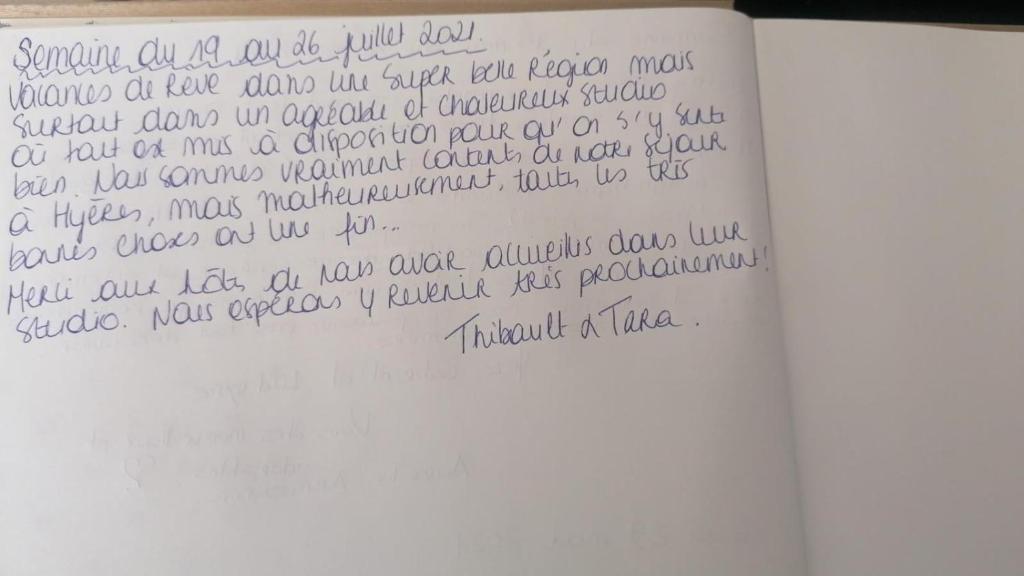 Semaine du 19 au 26 juillet 2021.
Vacances de Rêve dans une super belle Région mais
surtout dans un agréable et chaleureux studio
où tout est mis à disposition pour qu'on s'y sente
bien. Nous sommes vraiment contents de notre séjour
à Hyères, mais malheureusement, toutes les très
bonnes choses ont une fin...
Merci aux hôtes de nous avoir accueillis dans leur
studio. Nous espérons y revenir très prochainement!
Thibault & Tara.